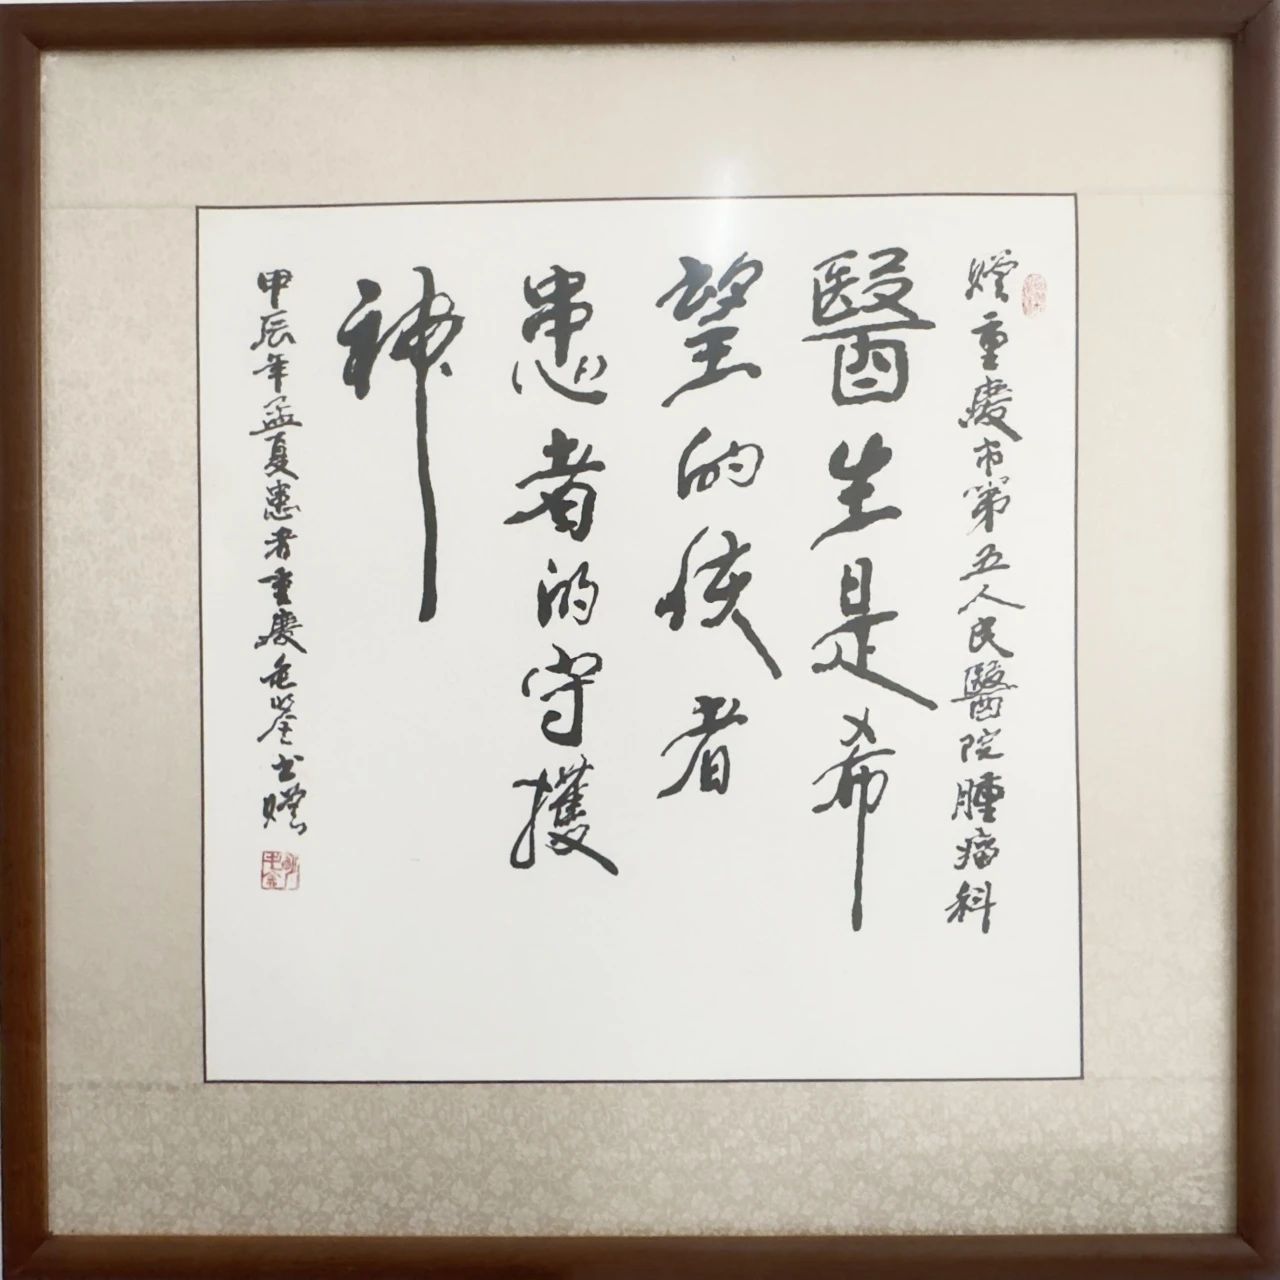 贈重慶市第五人民醫院腫瘤科
醫生是希
望的使者
患者的守護
神
甲辰年孟夏患者重慶书贈